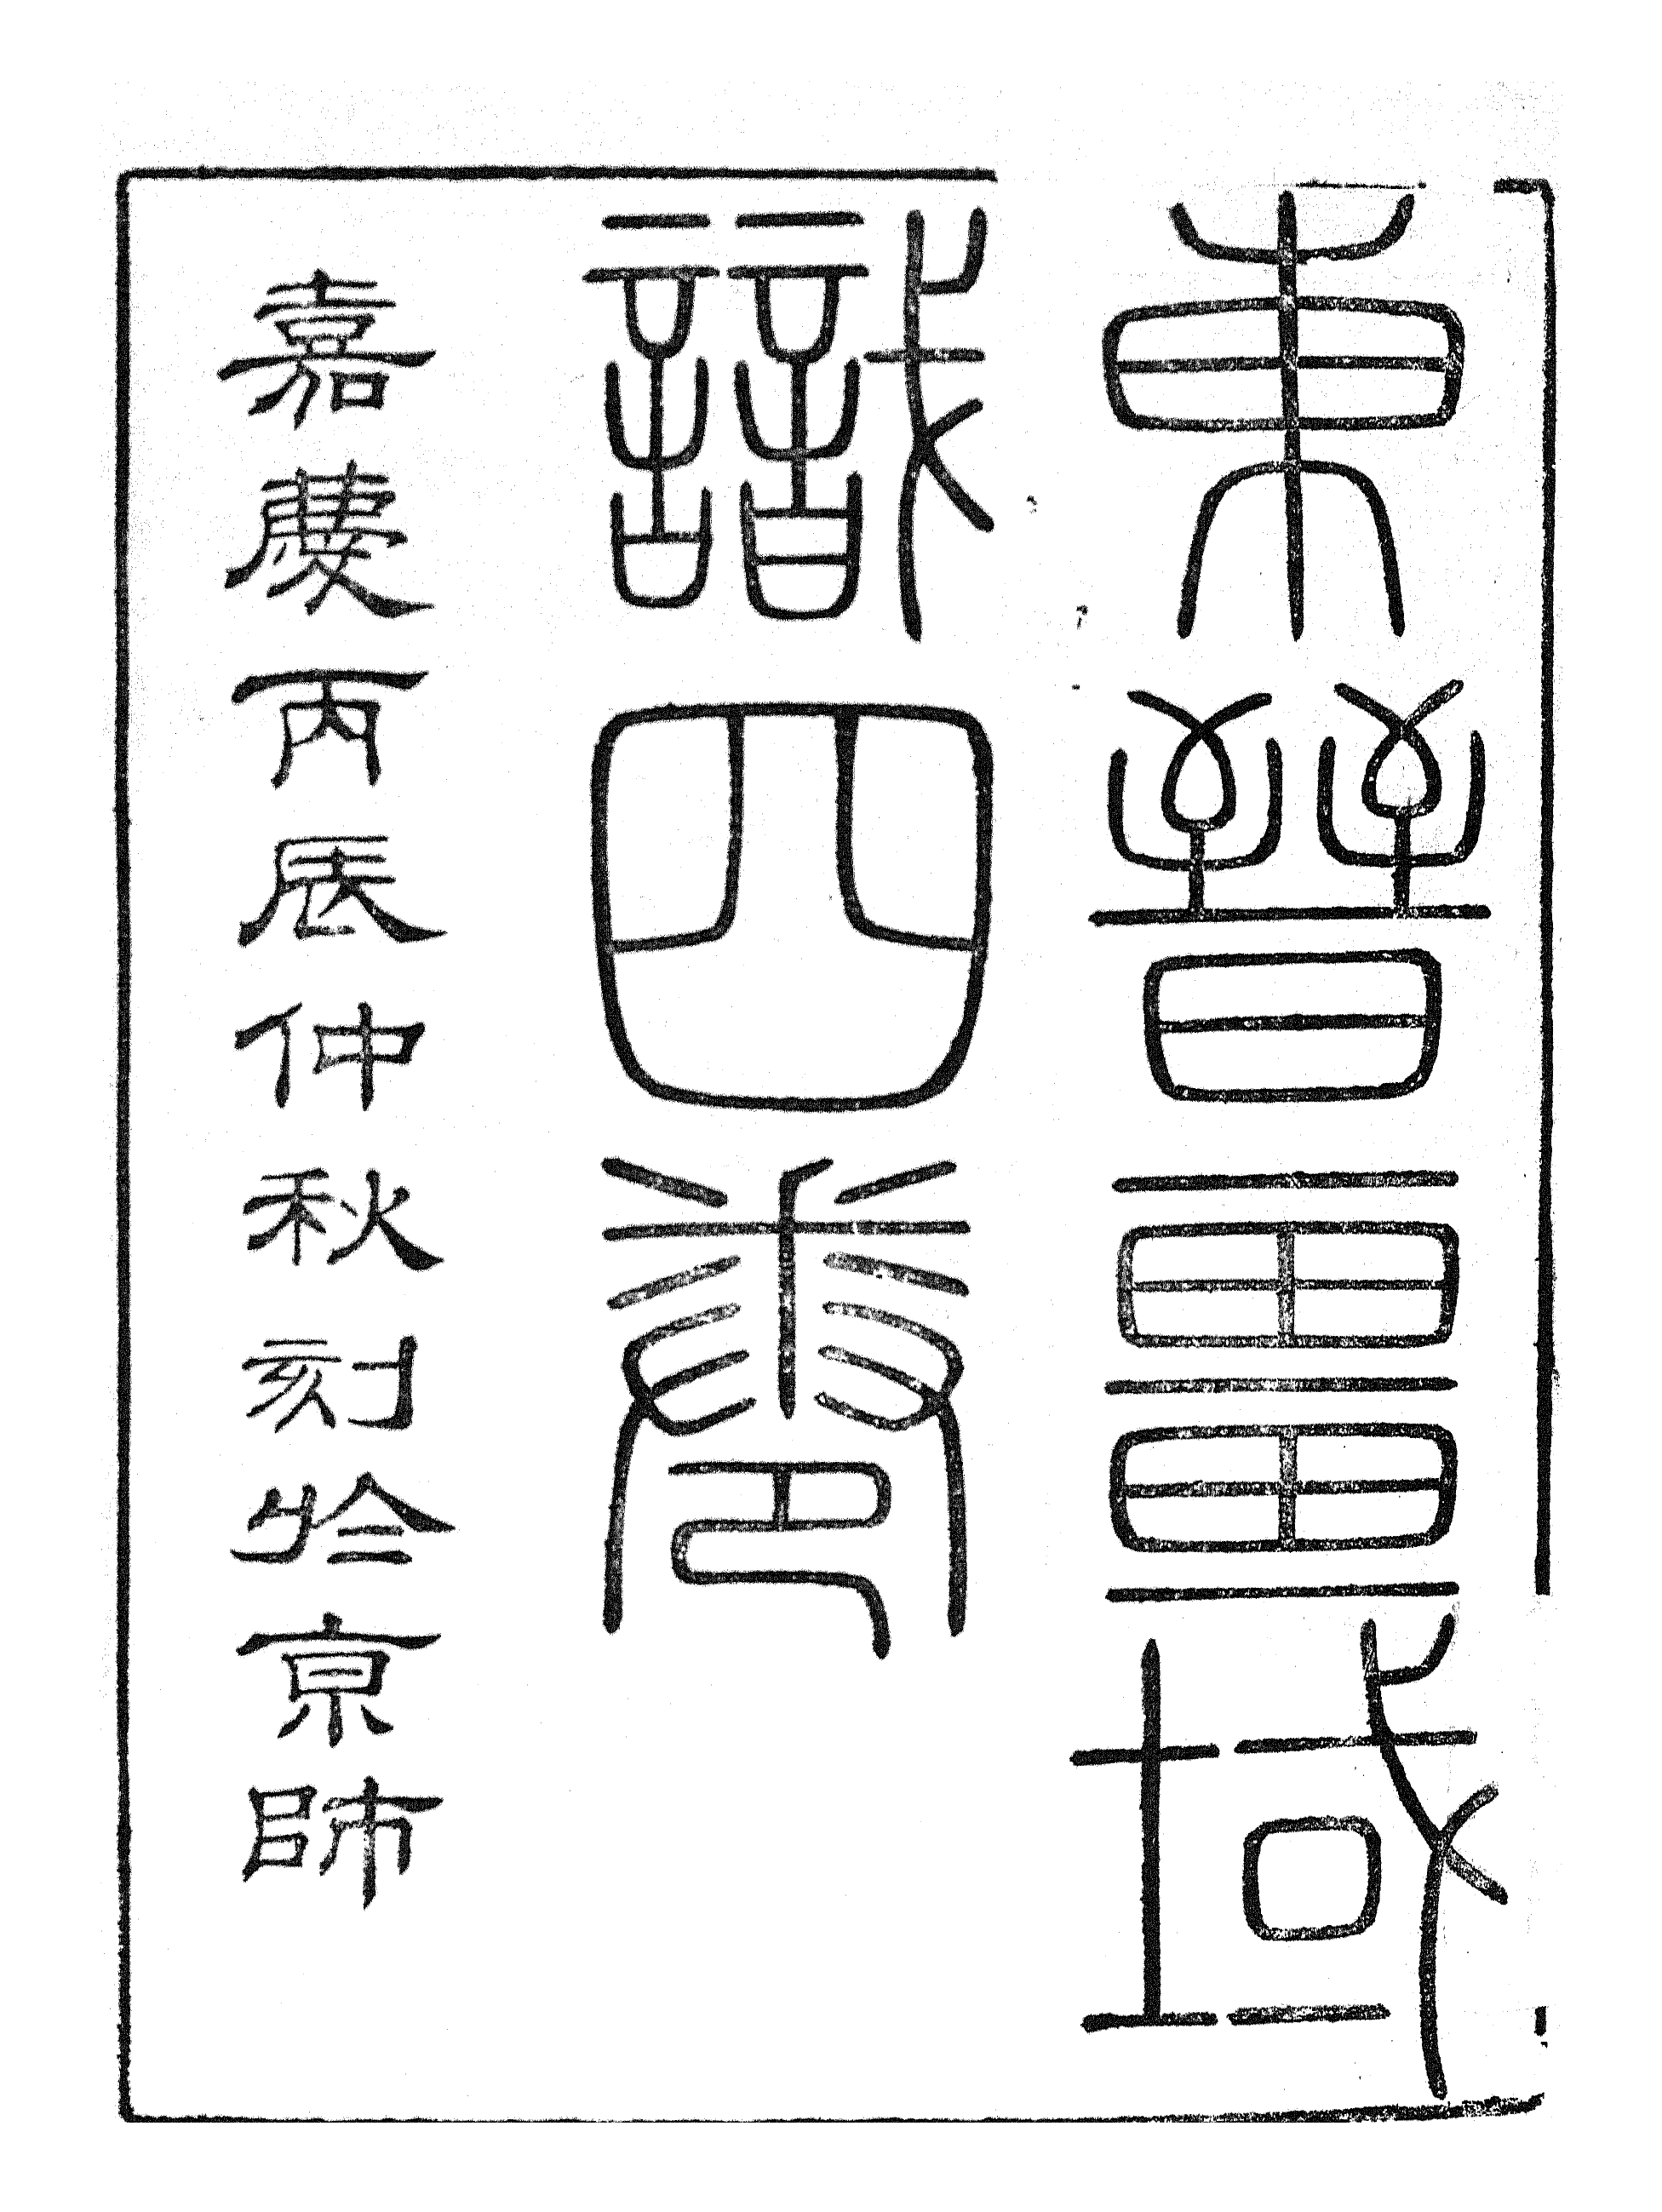 東晉畺域
識四卷
嘉慶丙辰仲秋刻於京師